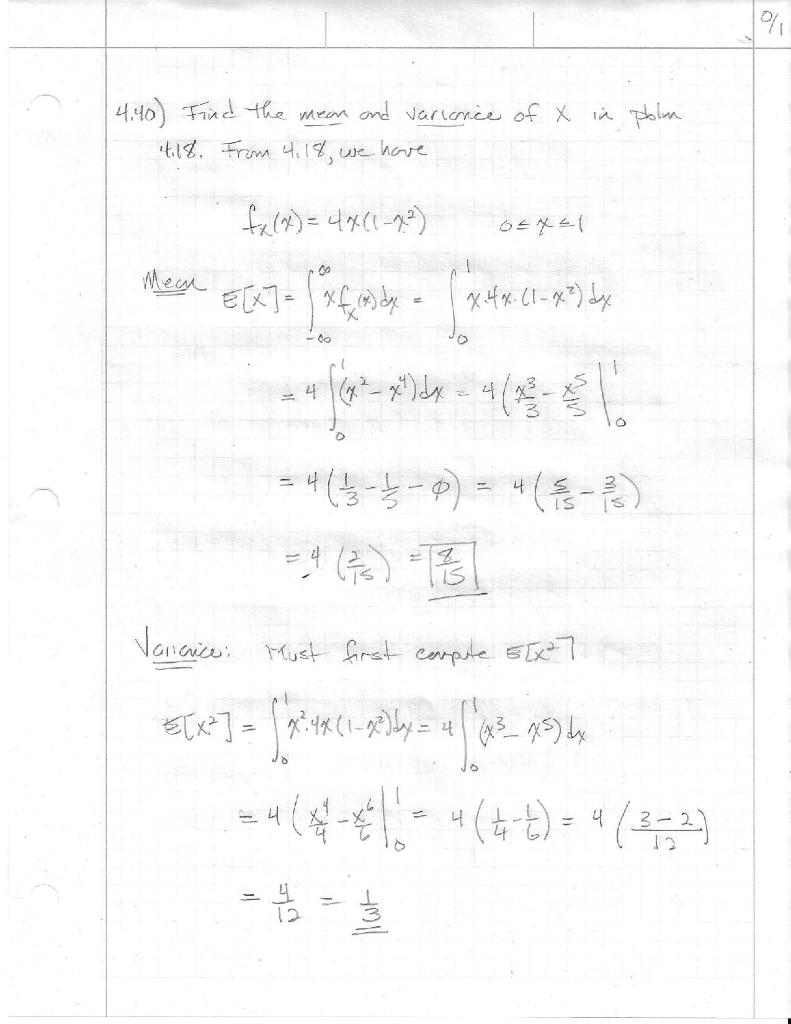 0/1
4.40) Find the mean and variance of X in pblm
4.18. From 4.18, we have
f_X(x) = 4x(1-x²) 0 ≤ x ≤ 1
Mean E[X] = ∫_{-∞}^{∞} x f_X(x) dx = ∫_0^1 x·4x·(1-x²) dx
= 4 ∫_0^1 (x² - x⁴) dx = 4 (x³/3 - x⁵/5 |_0^1
= 4 (1/3 - 1/5 - ϕ) = 4 (5/15 - 3/15)
= 4 (2/15) = 8/15
Variance: Must first compute E[X²]
E[X²] = ∫_0^1 x²·4x(1-x²) dx = 4 ∫_0^1 (x³ - x⁵) dx
= 4 (x⁴/4 - x⁶/6 |_0^1 = 4 (1/4 - 1/6) = 4 (3-2/12)
= 4/12 = 1/3